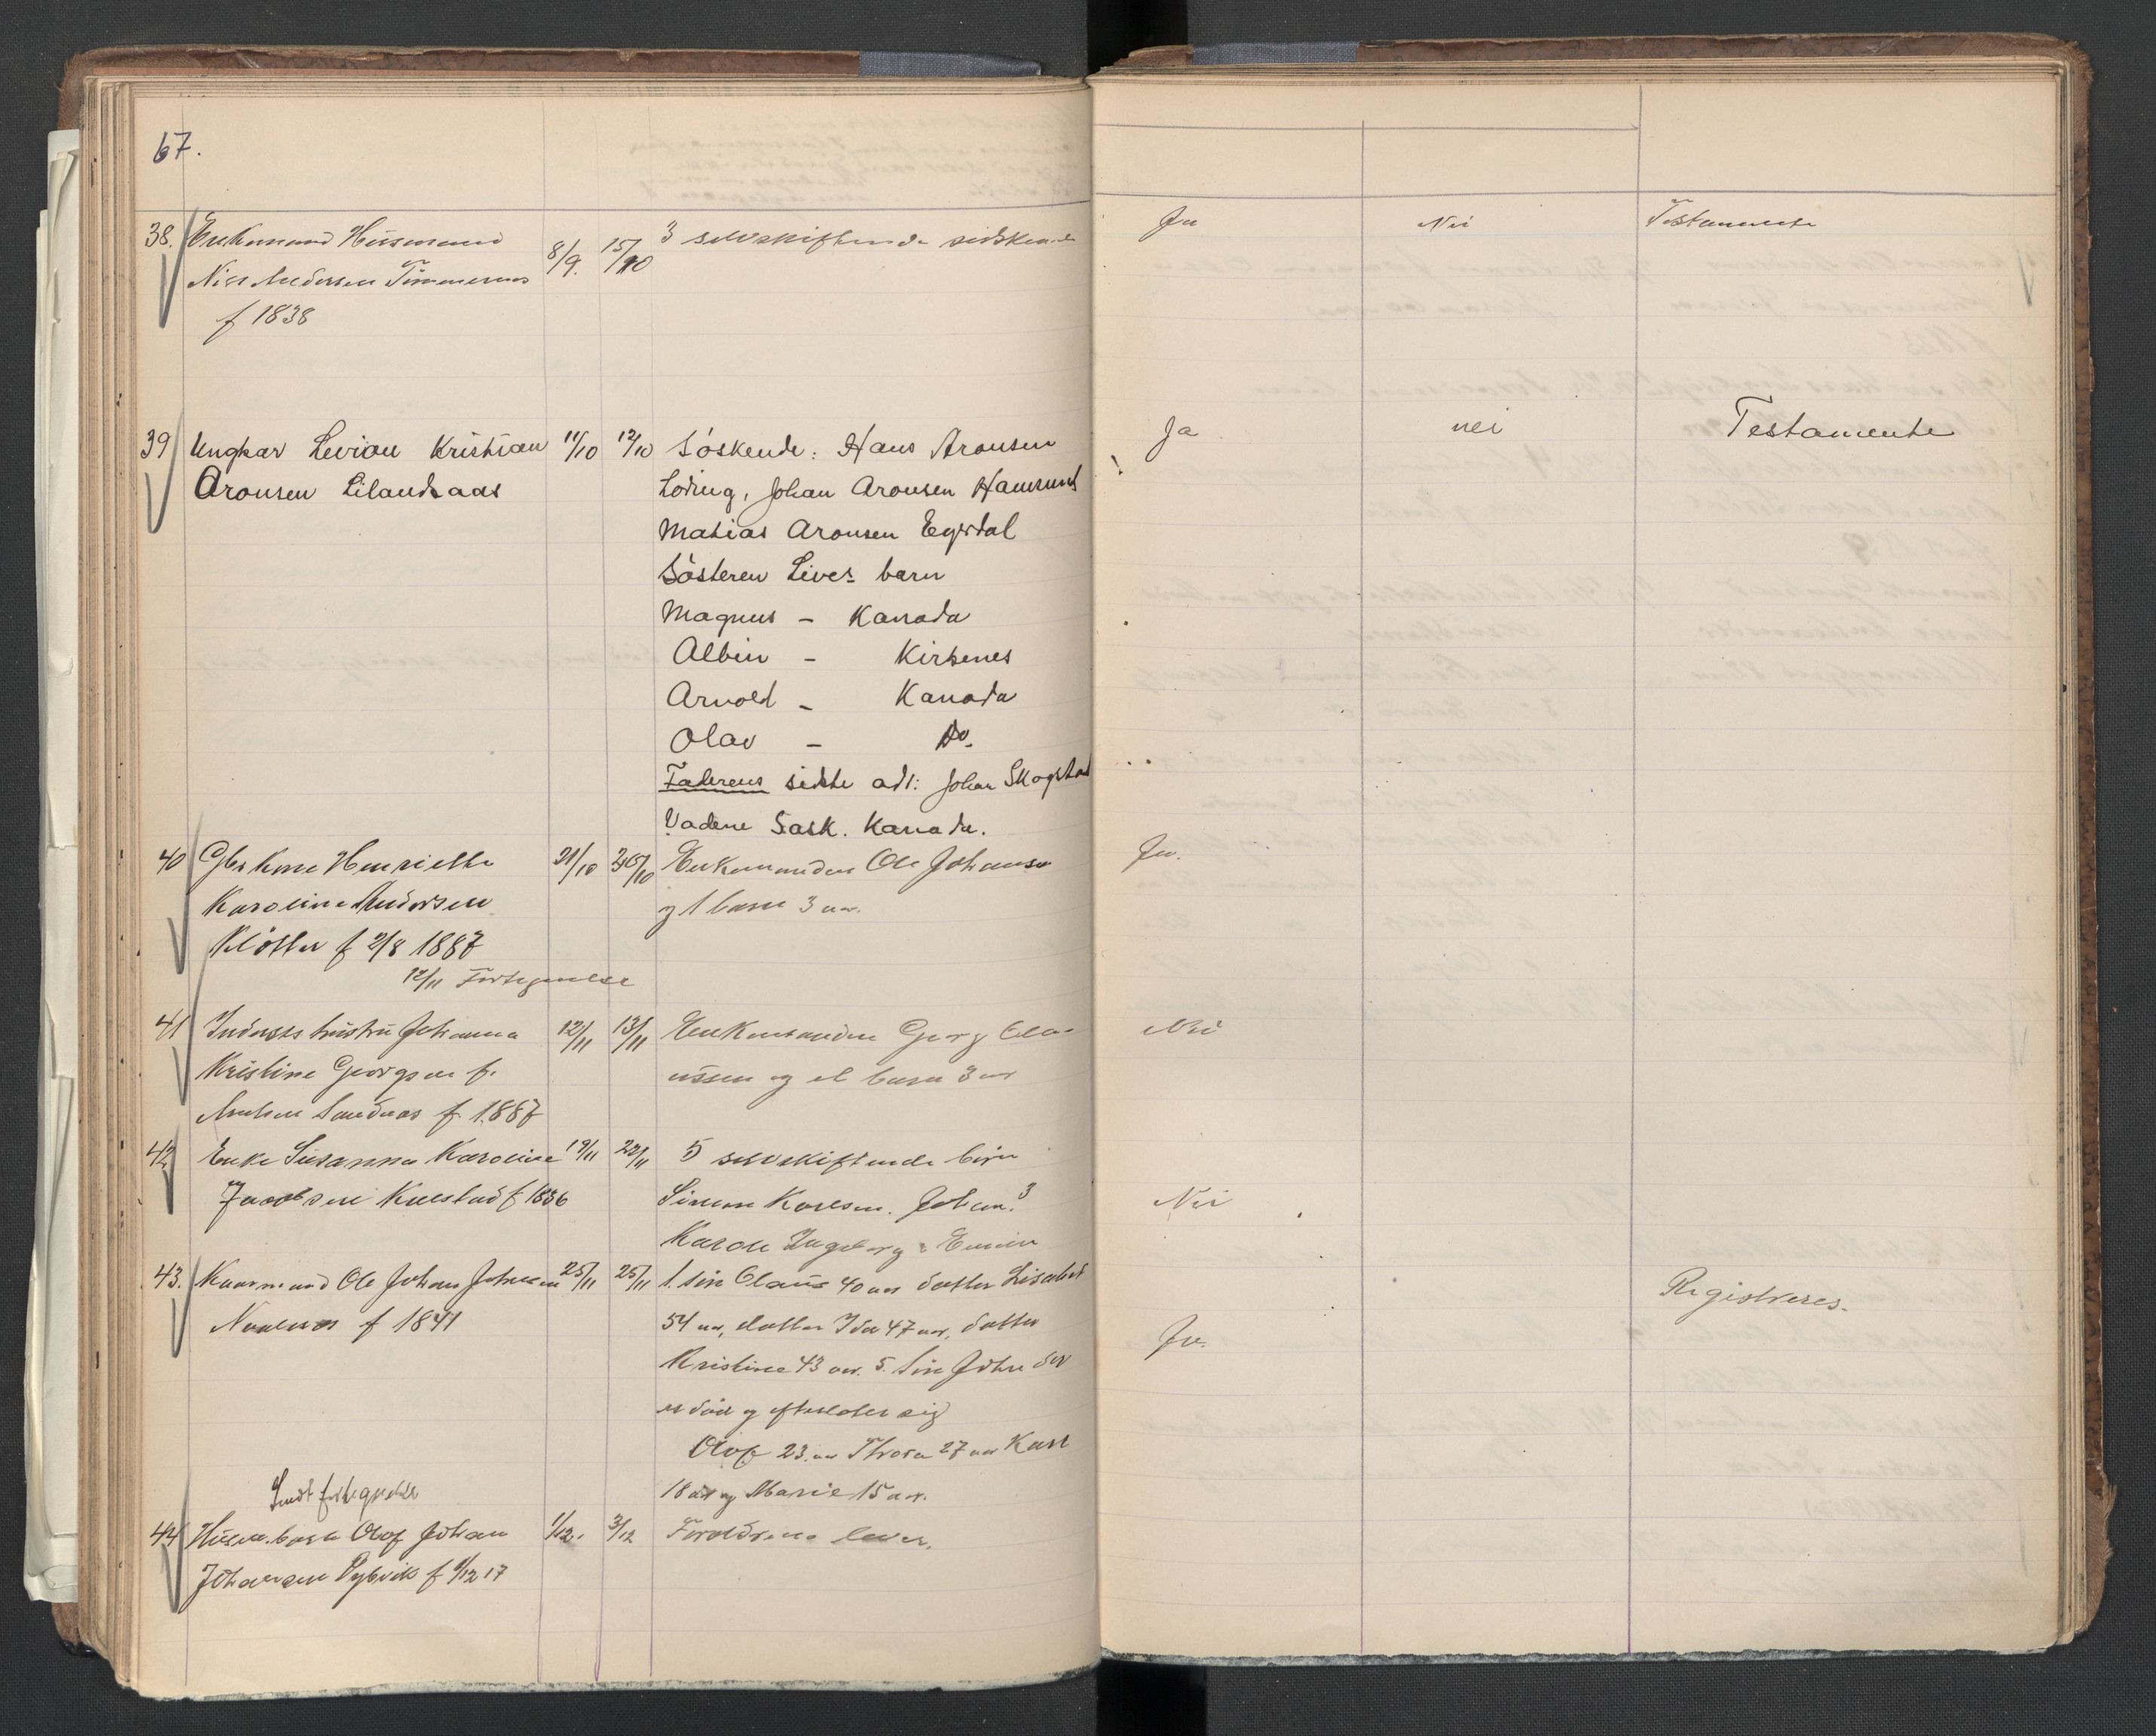 67.
38. Enkemand Husmand 8/9. 15/10 3 selvskiftende sødskende Ja Nei Testamente
Nils Andersen Tømmernes
f 1838
39 Ungkar Levion Kristian 11/10 12/10 Søskende: Hans Aronsen Ja nei Testamente
Aronsen Lilandsaas Løding, Johan Aronsen Hamsund
Matias Aronsen
Søsteren Lives barn
Magnus - Kanada
Albin - Kirkenes
Arnold - Kanada
Olav - Do.
Faderens sidste adr: Johan Skogstad
Vadene Sask. Kanada.
40 Gbr kone Henriette 21/10 26/10 Enkemanden Ole Johansen Ja.
Karoline Andersen og 1 barn 3 aar.
f 2/8 1887
12/11 Fortegnelse
41 Indersts hustru Johanna 12/11 13/11 Enkemanden Georg Cla- Nei
Kristine Georgsen f. ussen og et barn 3 aar
Sandnes f. 1887
42 Enke Susanna Karoline 19/11 22/11 5 selvskiftende børn
Jacobsen f 1836 Simon Karlsen. Johan. 3 Nei
Karole Ingeborg
43. Kaarmand Ole Johan Johnsen 25/11 25/11 1. søn Claus 40 aar datter Lisabet Registreres.
f 1841 54 aar, datter Ida 47 aar, datter Ja.
Kristine 43 aar. 5. Søn John der
er død og efterlater sig
Olof 23 aar Thora 27 aar Karl
Sendt fortegnelse 18 aar og Marie 15 aar.
44 Husm. barn Olof Johan 1/12. 3/12 Forældrene lever.
Johansen Dybvik f 1/12 17